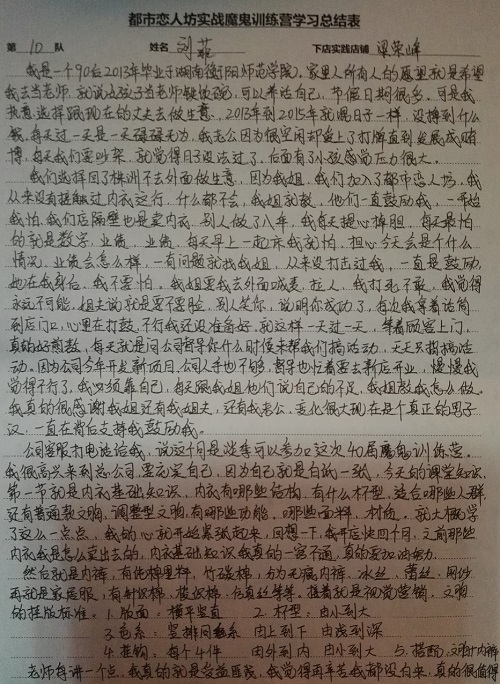 都市恋人坊实战魔鬼训练营学习总结表
第 10 队 姓名 刘菲 下店实践店铺 果荣峰
我是一个90后2013年毕业于湖南衡阳师范学院。家里人所有人的愿望就是希望
我去当老师,就说女孩子当老师铁饭碗,可以养活自己,节假日期很多。可是我
执意选择跟现在的丈夫去做生意,2013年到2015年就混日子一样,没挣到什么
钱,每天过一天是一天碌碌无为,我老公因为很空闲却爱上了打牌直到发展成赌
博,每天我们要吵架,就觉得日子没法过了,后面有了小孩感觉压力很大。
我们选择回了株洲不去外面做生意,因为我姐,我们加入了都市恋人坊,我
从来没有接触过内衣这行,什么都不会,我姐就教,他们一直鼓励我,一边
我怕,我们店隔壁也是卖内衣,别人做了八年,我每天提心掉胆,每天最怕
的就是数字,业绩,业绩,每天早上一起床我就怕,担心今天会是个什么
情况,业绩会怎么样,一有问题就找我姐,从来没打击过我,一直是鼓励,
她在我身后,我不要怕。我姐要我去外面喊麦,拉人,我打死不敢,我觉得
永远不可能,姐夫说就是要不要脸,别人笑你,说明你成功了,每次我拿着话筒
到店门口,心里在打鼓,不行我还没准备好,就这样一天过一天,等着顾客上门,
真的好煎熬,每天就是问公司督导你什么时候来帮我们搞活动,天天只指搞活
动。因为公司今年开发新项目,公司人手也不够,督导也忙着要去新店开业,慢慢我
觉得不行了,我必须靠自己,每天跟我姐他们说自己的不足,我姐教我怎么做。
我真的很感谢我姐还有我姐夫,还有我老公,变化很大现在是个真正的男子
汉,一直在背后支持我鼓励我。
公司客服打电话给我,说这个月是淡季可以参加这次40届魔鬼训练营。
我很高兴来到总公司,要充实自己,因为自己就是白纸一张,今天的课堂知识,
第一节就是内衣基础知识,内衣有哪些结构,有什么杯型,适合哪些人群
还有普通款文胸,调整型文胸,有哪些功能。哪些面料,材质。就大概学
了这么一点点,我的心就开始紧张起来,回想一下,我开店快四个月,之前那些
内衣我是怎么卖出去的,内衣基础知识我真的一窍不通,真的要加油努力。
然后就是内裤,有纯棉里料,竹碳棉,分为无痕内裤,冰丝,蕾丝,网纱
再就是家居服,有针织棉,梭织棉,仿真丝等等。接着就是视觉营销,文胸
的挂版标准。1.版面:横平竖直 2.杯型:由小到大
3.色系:竖排同色系 由上到下 由浅到深
4.挂钩:每个4件 由外到内 由小到大 5.搭配:文胸+内裤
老师每讲一个点,我真的就是受益匪浅,我觉得再辛苦我都没白来,真的很值得